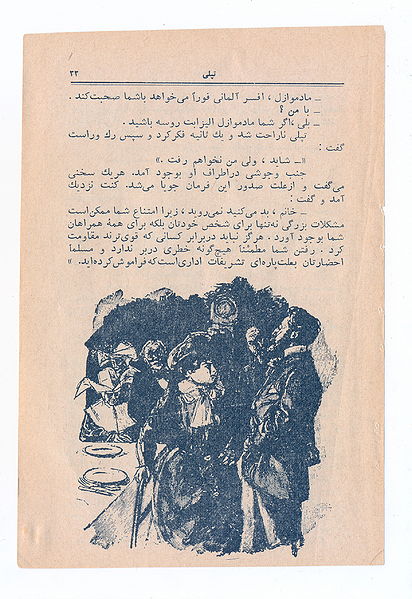 تپلی ۲۳
ـ مادموازل ، افسر آلمانی فوراً می‌خواهد باشما صحبت‌کند .
ـ با من ؟
ـ بلی ،اگر شما مادموازل الیزابت روسه باشید .
تپلی ناراحت شد و یك ثانیه فکرکرد و سپس رك وراست
گفت :
«ـ شاید ، ولی من نخواهم رفت .»
جنب وجوشی دراطراف او بوجود آمد. هریك سخنی
می‌گفت و ازعلت صدور این فرمان جویا می‌شد. کنت نزدیك
آمد و گفت :
ـ خانم ، بد می‌کنید نمی‌روید ، زیرا امتناع شما ممکن‌است
مشکلات بزرگی نه‌تنها برای شخص خودتان بلکه برای همهٔ همراهان
شما بوجود آورد . هرگز نباید دربرابر کسانی که قوی‌ترند مقاومت
کرد . رفتن شما مطمئناً هیچ‌گونه خطری دربر ندارد و مسلما
احضارتان بعلت‌پاره‌ای تشریفات اداری‌است‌که‌فراموش‌کرده‌اید. »